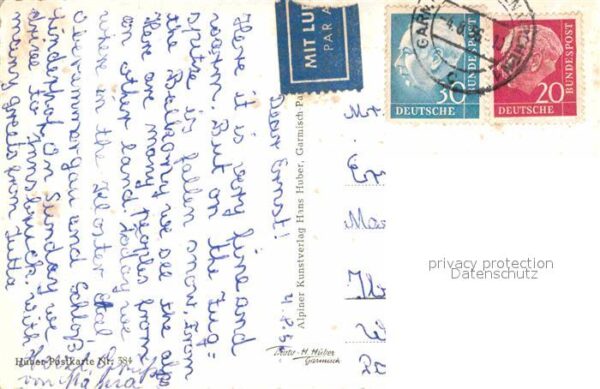 4.8.56
Dear Ernst!
Here it is very fine and
warm. But on the Zug=
spitze is fallen snow. From
the Balkony we see the alps
Here are many peoples from
on other land. Today we
where in the Kloster Ettal
Oberammergau and Schloß
Linderhof. On Sunday we
drive to Innsbruck. With
many greets from Jutta
Huber-Postkarte Nr. 384
Alpiner Kunstverlag Hans Huber, Garmisch-Pa
Photo-H. Huber
Garmisch
MIT LUF
PAR A
GARM
30
DEUTSCHE
BUNDESPOST
20
DEUTSCHE
BUNDESPOST
privacy protection
Datenschutz